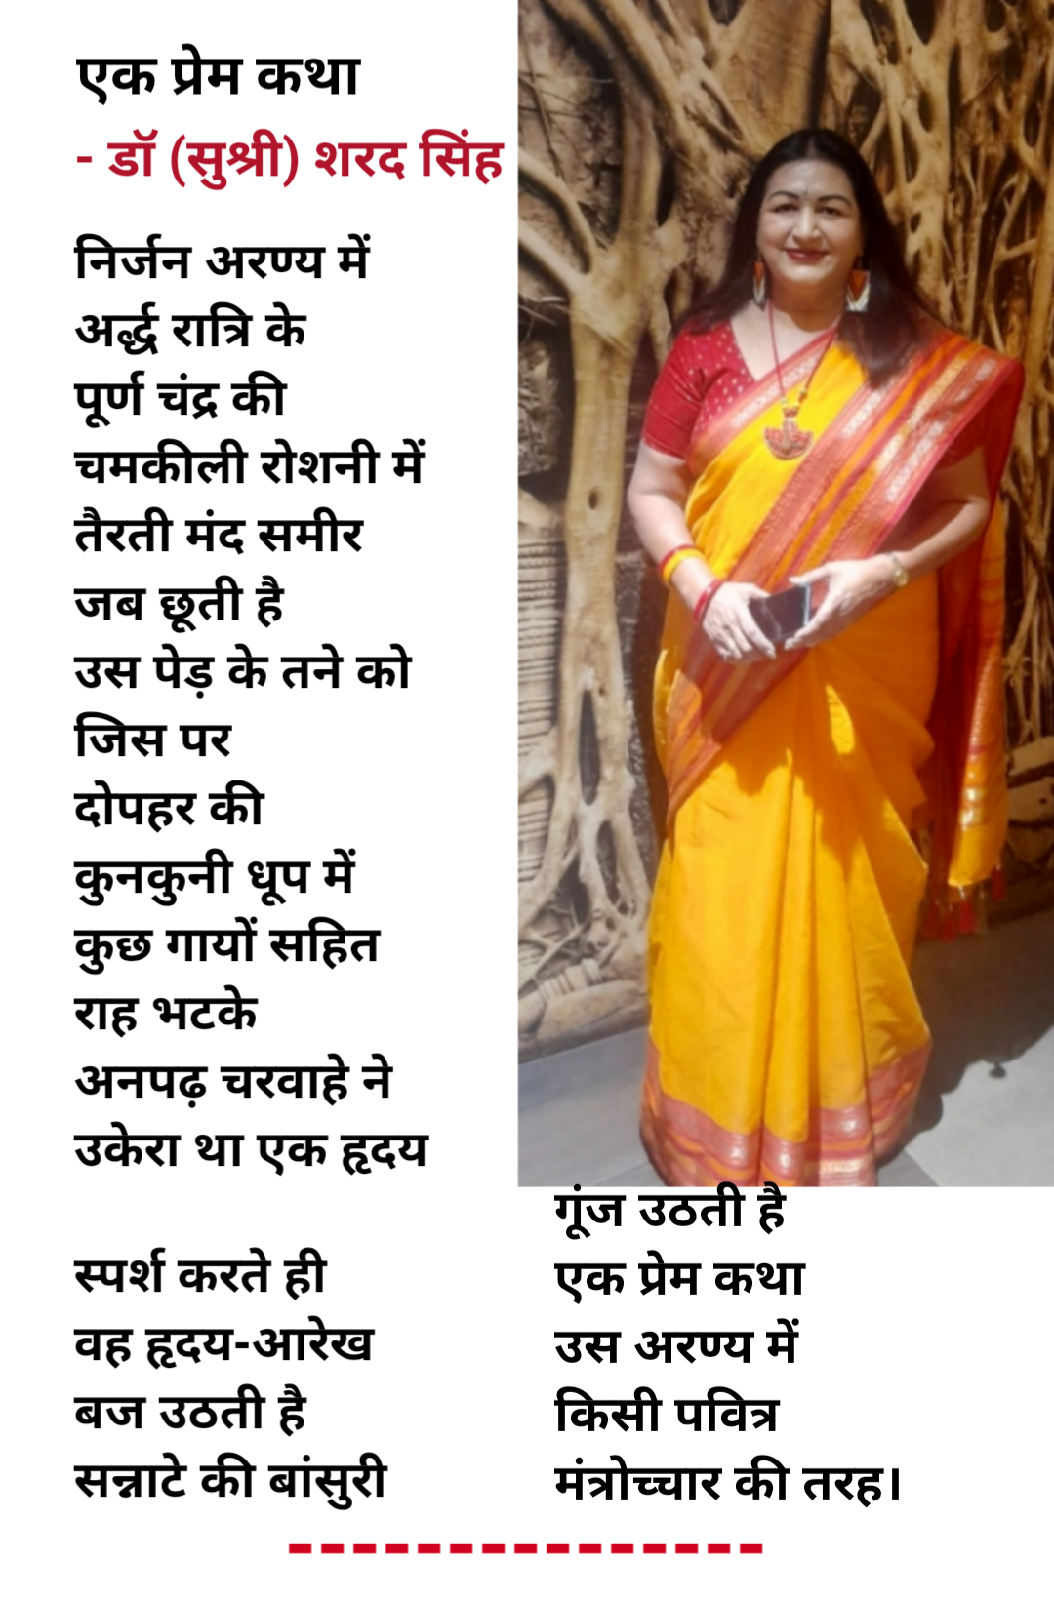 एक प्रेम कथा
- डॉ (सुश्री) शरद सिंह
निर्जन अरण्य में
अर्द्ध रात्रि के
पूर्ण चंद्र की
चमकीली रोशनी में
तैरती मंद समीर
जब छूती है
उस पेड़ के तने को
जिस पर
दोपहर की
कुनकुनी धूप में
कुछ गायों सहित
राह भटके
अनपढ़ चरवाहे ने
उकेरा था एक हृदय
स्पर्श करते ही
वह हृदय-आरेख
बज उठती है
सन्नाटे की बांसुरी
गूंज उठती है
एक प्रेम कथा
उस अरण्य में
किसी पवित्र
मंत्रोच्चार की तरह।